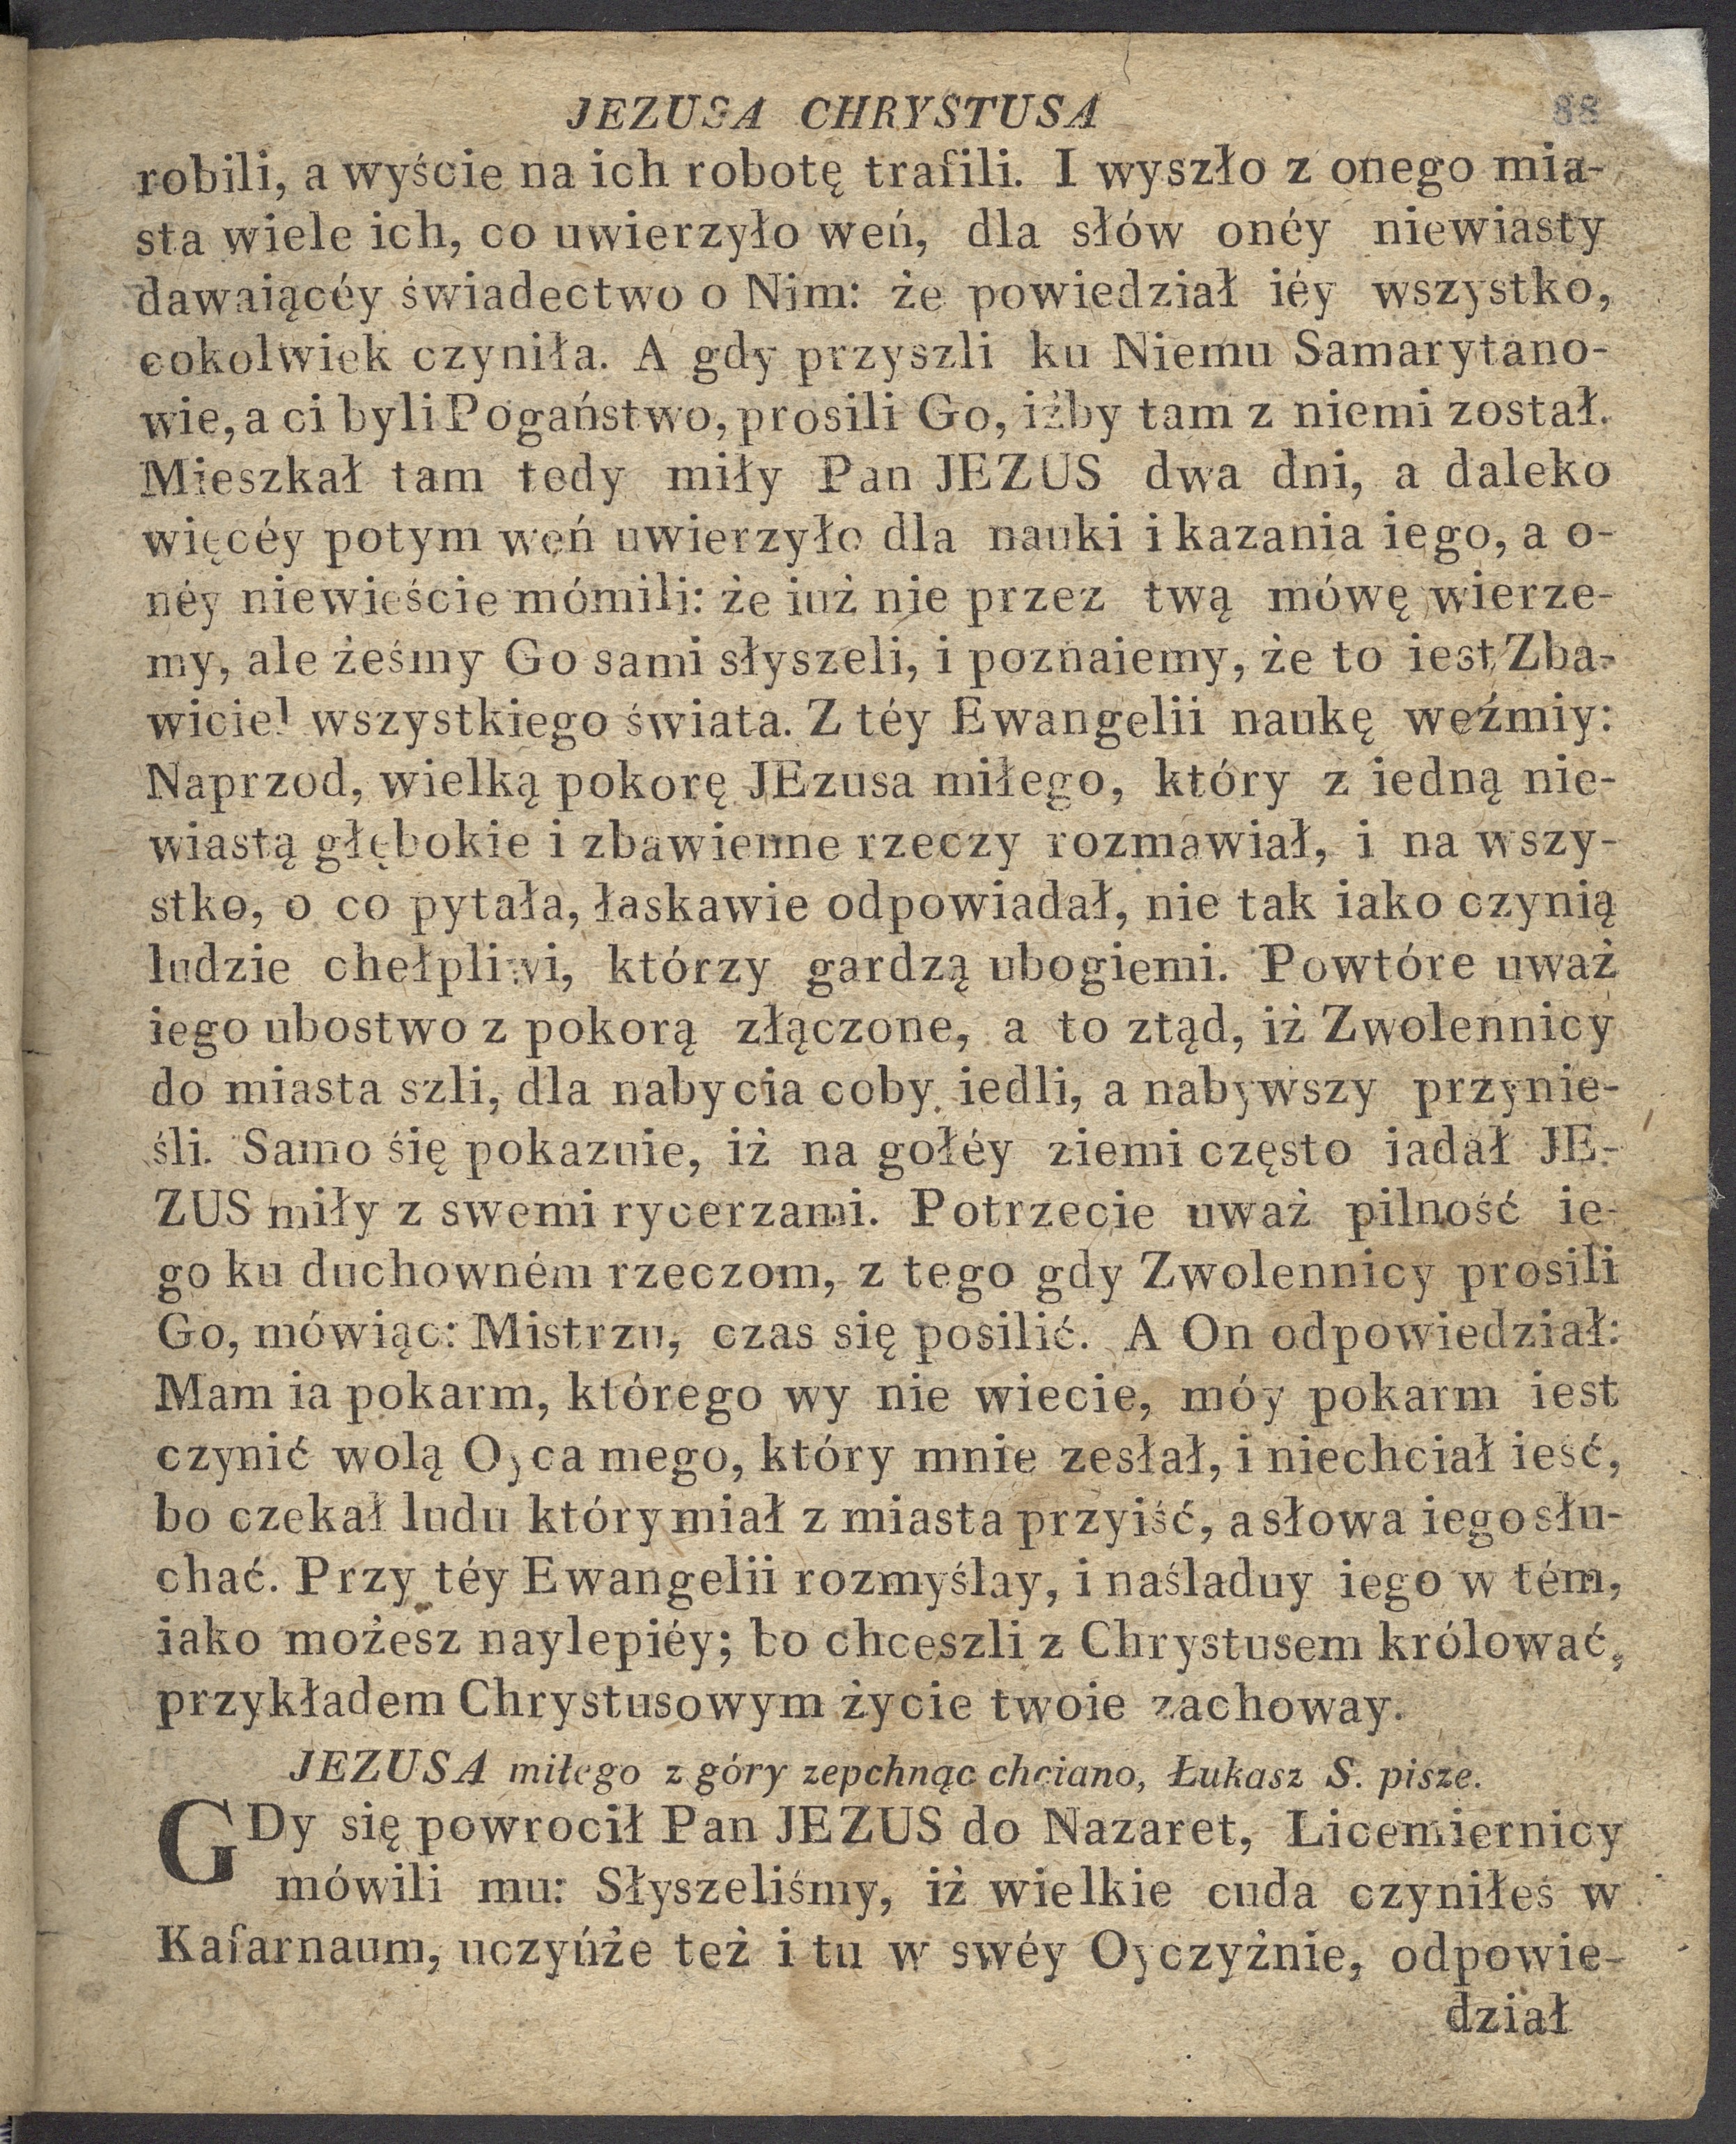 JEZUSA CHRYSTUSA 88
robili, a wyście na ich robotę trafili. I wyszło z onego mia-
sta wiele ich, co uwierzyło weń, dla słów onéy niewiasty
dawaiącéy świadectwo o Nim: że powiedział iéy wszystko,
cokolwiek czyniła. A gdy przyszli ku Niemu Samarytano-
wie, a ci byli Pogaństwo, prosili Go, iżby tam z niemi został.
Mieszkał tam tedy miły Pan JEZUS dwa dni, a daleko
więcéy potym weń uwierzyło dla nauki i kazania iego, a o-
néy niewieście mómili: że iuż nie przez twą mówę wierze-
my, ale żeśmy Go sami słyszeli, i poznaiemy, że to iest Zba-
wiciel wszystkiego świata. Z téy Ewangelii naukę weźmiy:
Naprzod, wielką pokorę JEzusa miłego, który z iedną nie-
wiastą głębokie i zbawienne rzeczy rozmawiał, i na wszy-
stko, o co pytała, łaskawie odpowiadał, nie tak iako czynią
ludzie chełpliwi, którzy gardzą ubogiemi. Powtóre uważ
iego ubostwo z pokorą złączone, a to ztąd, iż Zwolennicy
do miasta szli, dla nabycia coby iedli, a nabywszy przynie-
śli. Samo śię pokazuie, iż na gołéy ziemi często iadał JE-
ZUS miły z swemi rycerzami. Potrzecie uważ pilność ie-
go ku duchowném rzeczom, z tego gdy Zwolennicy prosili
Go, mówiąc: Mistrzu, czas się posilić. A On odpowiedział:
Mam ia pokarm, którego wy nie wiecie, móy pokarm iest
czynić wolą Oyca mego, który mnie zesłał, i niechciał ieść,
bo czekał ludu który miał z miasta przyiść, a słowa iego słu-
chać. Przy téy Ewangelii rozmyślay, i naśladuy iego w tém,
iako możesz naylepiéy; bo chceszli z Chrystusem królować,
przykładem Chrystusowym życie twoie zachoway.
JEZUSA miłego z góry zepchnąc chciano, Łukasz S. pisze.
GDy się powrocił Pan JEZUS do Nazaret, Licemiernicy
mówili mu: Słyszeliśmy, iż wielkie cuda czyniłeś w
Kafarnaum, uczyńże też i tu w swéy Oyczyźnie, odpowie-
dział